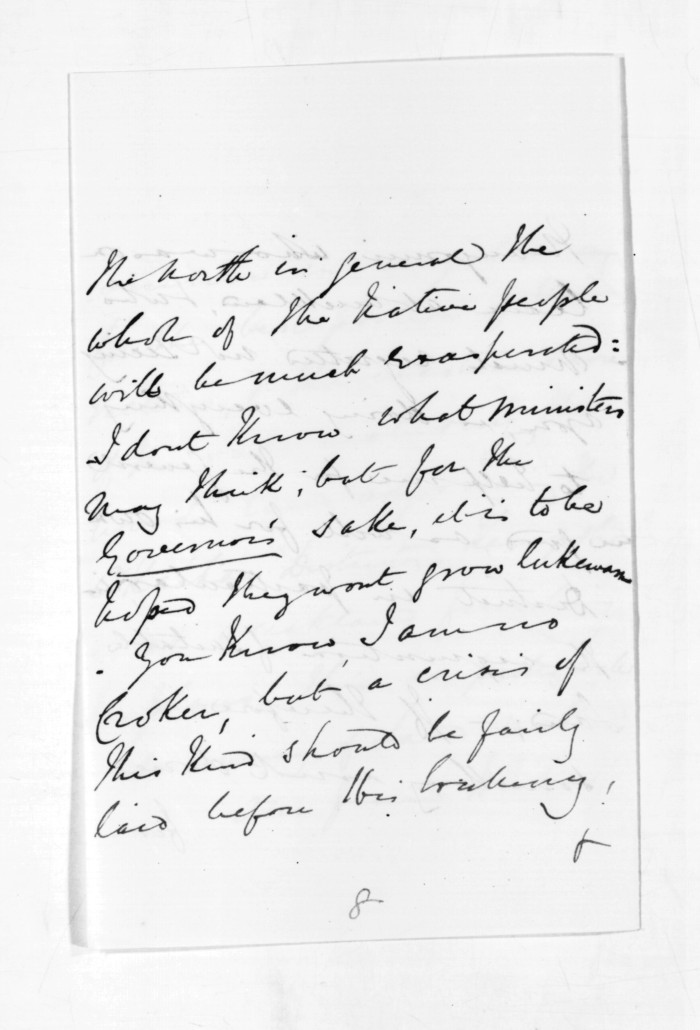 the North in general the
whole of the Native people
will be much exasperated:
I dont know what Ministers
may think; but for the
Governor's sake, it is to be
hoped they wont grow lukewarm
. You know, I am no
Croker, but a crisis of
this kind should be fairly
laid before His
&
8